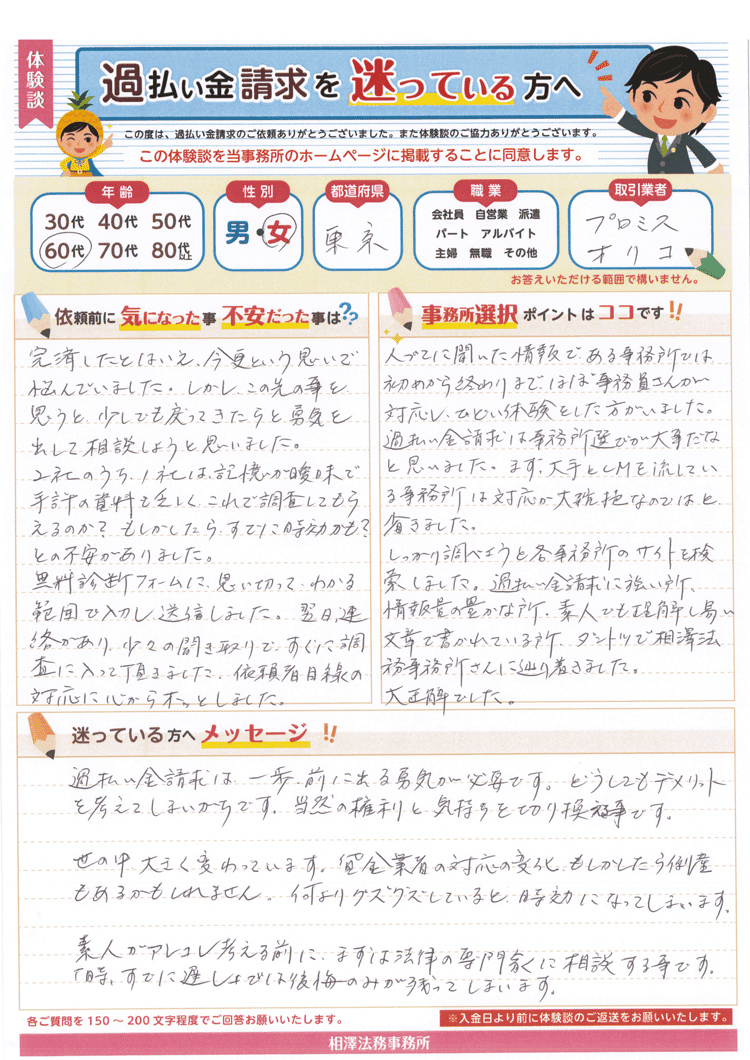 体験談
過払い金請求を迷っている方へ
この度は、過払い金請求のご依頼ありがとうございました。また体験談のご協力ありがとうございます。
この体験談を当事務所のホームページに掲載することに同意します。
年齢
30代 40代 50代
60代 70代 80代以上
性別
男・女
都道府県
東京
職業
会社員 自営業 派遣
パート アルバイト
主婦 無職 その他
取引業者
プロミス
オリコ
お答えいただける範囲で構いません。
依頼前に気になった事 不安だった事は??
完済したとはいえ、今更という思いで
悩んでいました。しかし、この先の事を
思うと、少しでも戻ってきたらと勇気を
出して相談しようと思いました。
2社のうち、1社は、記憶が曖昧で
手許の資料も乏しく、これで調査してもら
えるのか?もしかしたら、すでに時効かも?
との不安がありました。
無料診断フォームに、思い切って、わかる
範囲で入力し、送信しました。翌日、連
絡があり、少々の聞き取りで、すぐに調
査に入って頂きました。依頼者目線の
対応に心からホッとしました。
事務所選択ポイントはココです!!
人づてに聞いた情報で、ある事務所では
初めから終わりまで、ほぼ事務員さんが
対応し、ひどい体験をした方がいました。
過払い金請求は事務所選びが大事だな
と思いました。まず、大手とCMを流してい
る事務所は対応が大雑把なのではと、
省きました。
しっかり調べようと各事務所のサイトを検
索しました。過払い金請求に強い所、
情報量の豊かな所、素人でも理解し易い
文章で書かれている所、ダントツで相澤法
務事務所さんに辿り着きました。
大正解でした。
迷っている方へメッセージ!!
過払い金請求は、一歩、前に出る勇気が必要です。どうしてもデメリット
を考えてしまいがちです。当然の権利と気持ちを切り換える事です。
世の中大きく変わっています。貸金業者の対応の変化、もしかしたら倒産
もあるかもしれません。何よりグズグズしていると、時効になってしまいます。
素人がアレコレ考える前に、まずは法律の専門家に相談する事です。
「時、すでに遅し」では後悔のみが残ってしまいます。
各ご質問を150〜200文字程度でご回答お願いいたします。
※入金日より前に体験談のご返送をお願いいたします。
相澤法務事務所